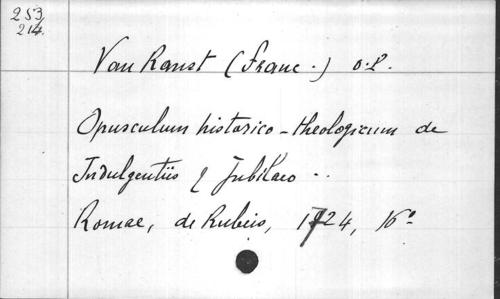 253
214.
Van Ranst (Franc.) o.P.
Opusculum historico-theologicum de
Indulgentiis & Jubilaeo ..
Romae, de Rubeis, 1724, 16°